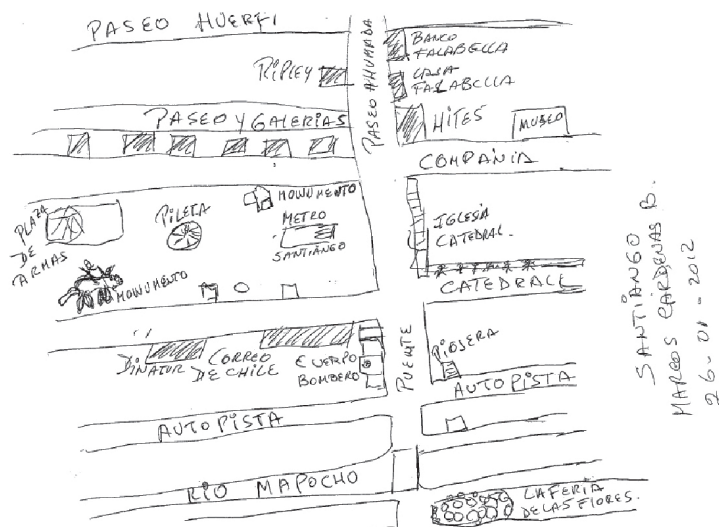 PASEO HUERFI
PASEO AHUMADA
BANCO
FALABELLA
CASA
FALABELLA
RIPLEY
PASEO Y GALERIAS
HITES
MUSEO
COMPAÑIA
PLAZA
DE
ARMAS
PILETA
MONUMENTO
METRO
SANTIANGO
IGLESIA
CATEDRAL.
MONUMENTO
CATEDRALL
DINATUR
CORREO
DE CHILE
CUERPO
BOMBERO
PUENTE
PIOJERA
AUTOPISTA
AUTOPISTA
RIO MAPOCHO
LA FERIA
DE LAS FLORES.
SANTIANGO
MARCOS CÁRDENAS B.
26-01-2012